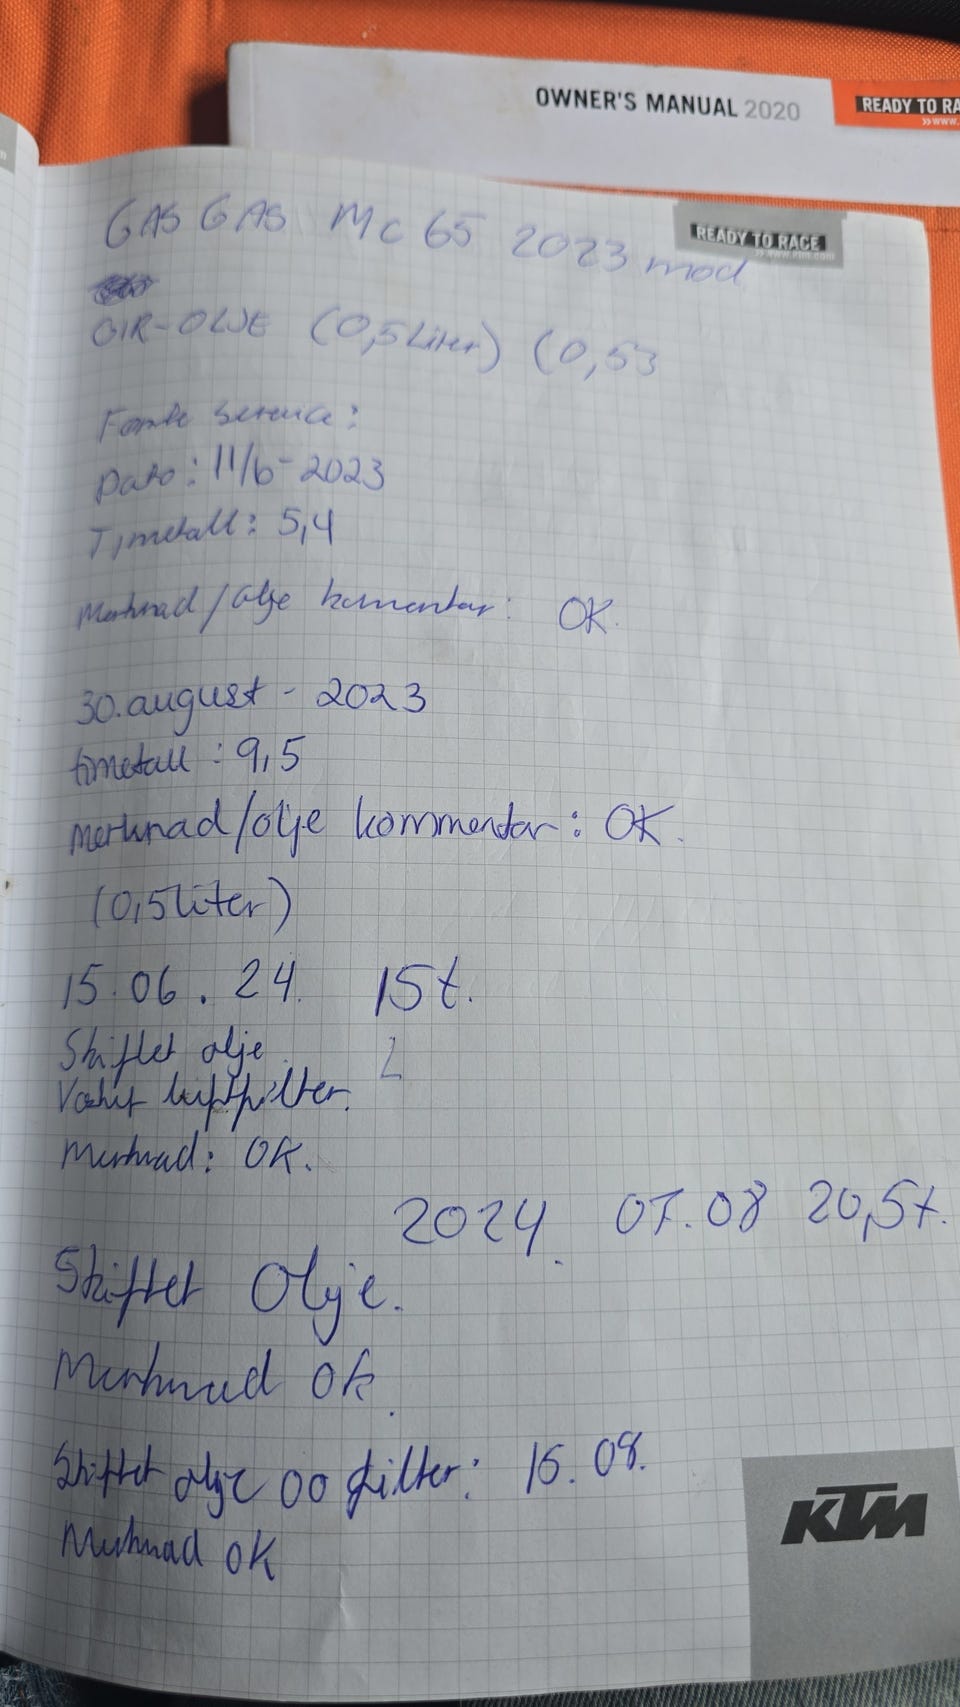 OWNER'S MANUAL 2020
READY TO RA
»www.
GAS GAS MC 65 2023 mod
READY TO RACE
»www.ktm.com
GIR-OLJE (0,5 Liter) (0,53
service:
Dato: 11/6-2023
Timetall: 5,4
Merknad/olje komentar: OK.
30. august - 2023
timetall: 9,5
merknad/olje kommentar: OK.
(0,5 liter)
15.06.24. 15t.
Skiftet olje.
luftfilter.
merknad: OK.
2024. 07.08 20,5t.
Skiftet Olje.
Merknad ok.
Skiftet olje oo filter: 15.08.
Merknad OK
KTM